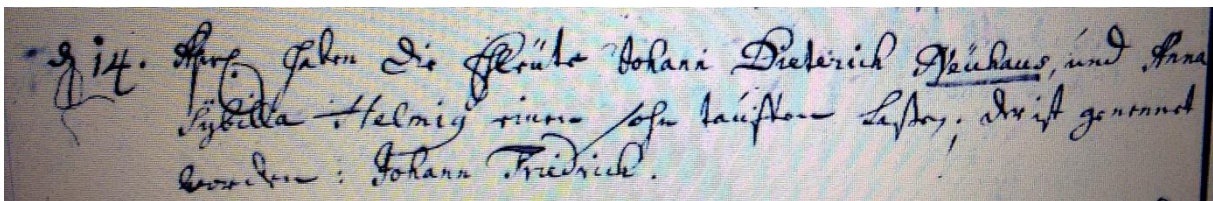 d 14. Apr. haben die Eheleüte Johann Dieterich Neühaus, und Anna
Sybilla Helmig einen sohn tauffen Laßen, der ist genennet
worden: Johann Friedrich.